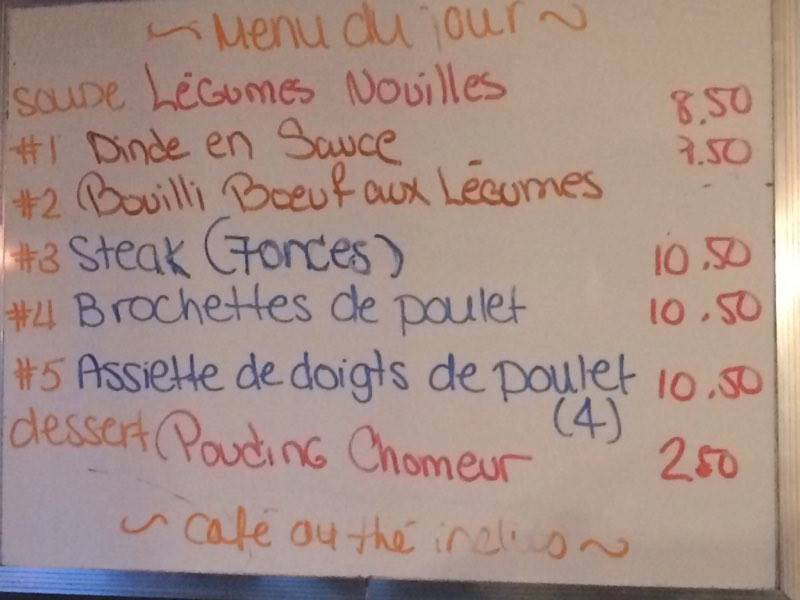 ~ Menu du jour ~
soupe Légumes Nouilles 8.50
#1 Dinde en Sauce 7.50
#2 Bouilli Boeuf aux Légumes -
#3 Steak (7onces) 10.50
#4 Brochettes de poulet 10.50
#5 Assiette de doigts de poulet 10.50
(4)
dessert Pouding Chomeur 2.50
~ café ou thé inclus ~